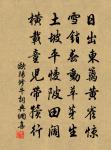 日出東籬黃雀驚
雪銷春動草芽生
土坡平慢陂田闊
橫載童兒帶犢行
歐陽修牛詞典網